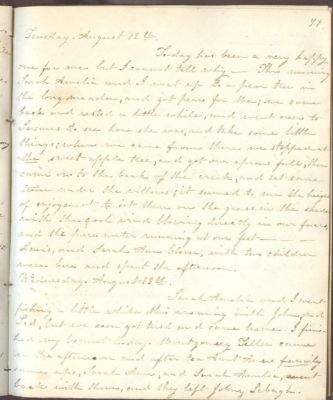 Tuesday. August 12th.
To day has been a very happy
one for me but I cannot tell why — This morning
Sarah Amelia and I went up to a pear tree in
the long meadow, and got pears for tea; we came
back and rested a little while, and went over to
to see how she was, and take some little
things; when we came from there we stopped at
the sweet apple tree, and got our aprons full, then
came on to the bank of the creek, and sat some
time under the willows; it seemed to me the height
of enjoyment to sit there on the grass in the shade
with the cool wind blowing directly in our faces,
and the pure water running at our feet —
Lewis, and Sarah Ann Clover, with two children
were here and spent the afternoon.
Wednesday August 13th.
Sarah Amelia and I went
fishing a little while this morning with John, and
but we soon got tired and came home. I finis-
hed my bonnet to day. Montgomery
in the afternoon and after tea Aunt family
came up, Sarah Ann, and Sarah Amelia, went
back with them, and they left